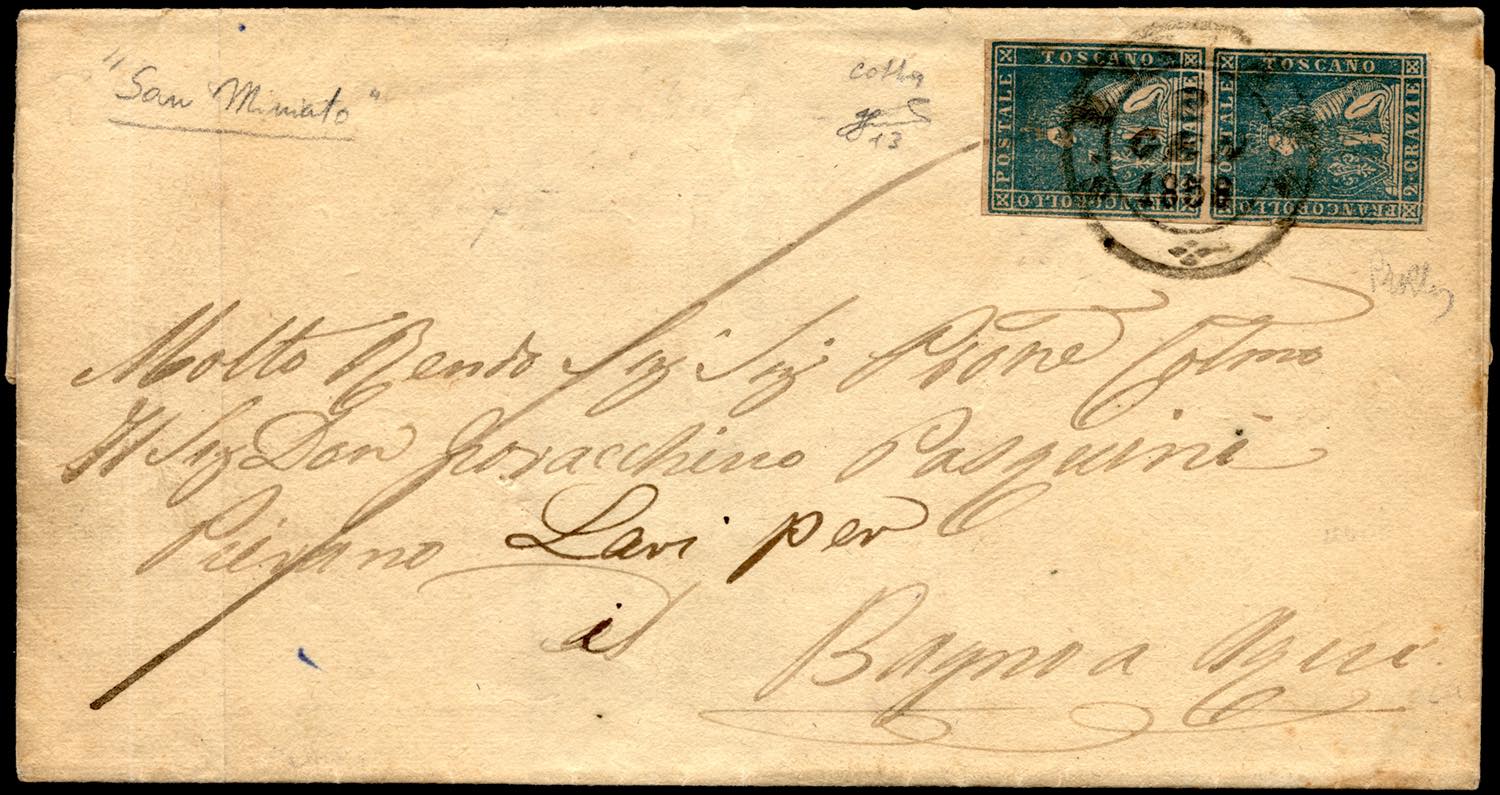 "San Miniato"
13
TOSCANO
POSTALE
FRANCOBOLLO
TOSCANO
2 GRAZIE
FRANCOBOLLO
Molto Rendo Sig Sig Prone Colmo
Il Sig Don Giovacchino Pasquini
Pievano Lari per
il
Bagno a